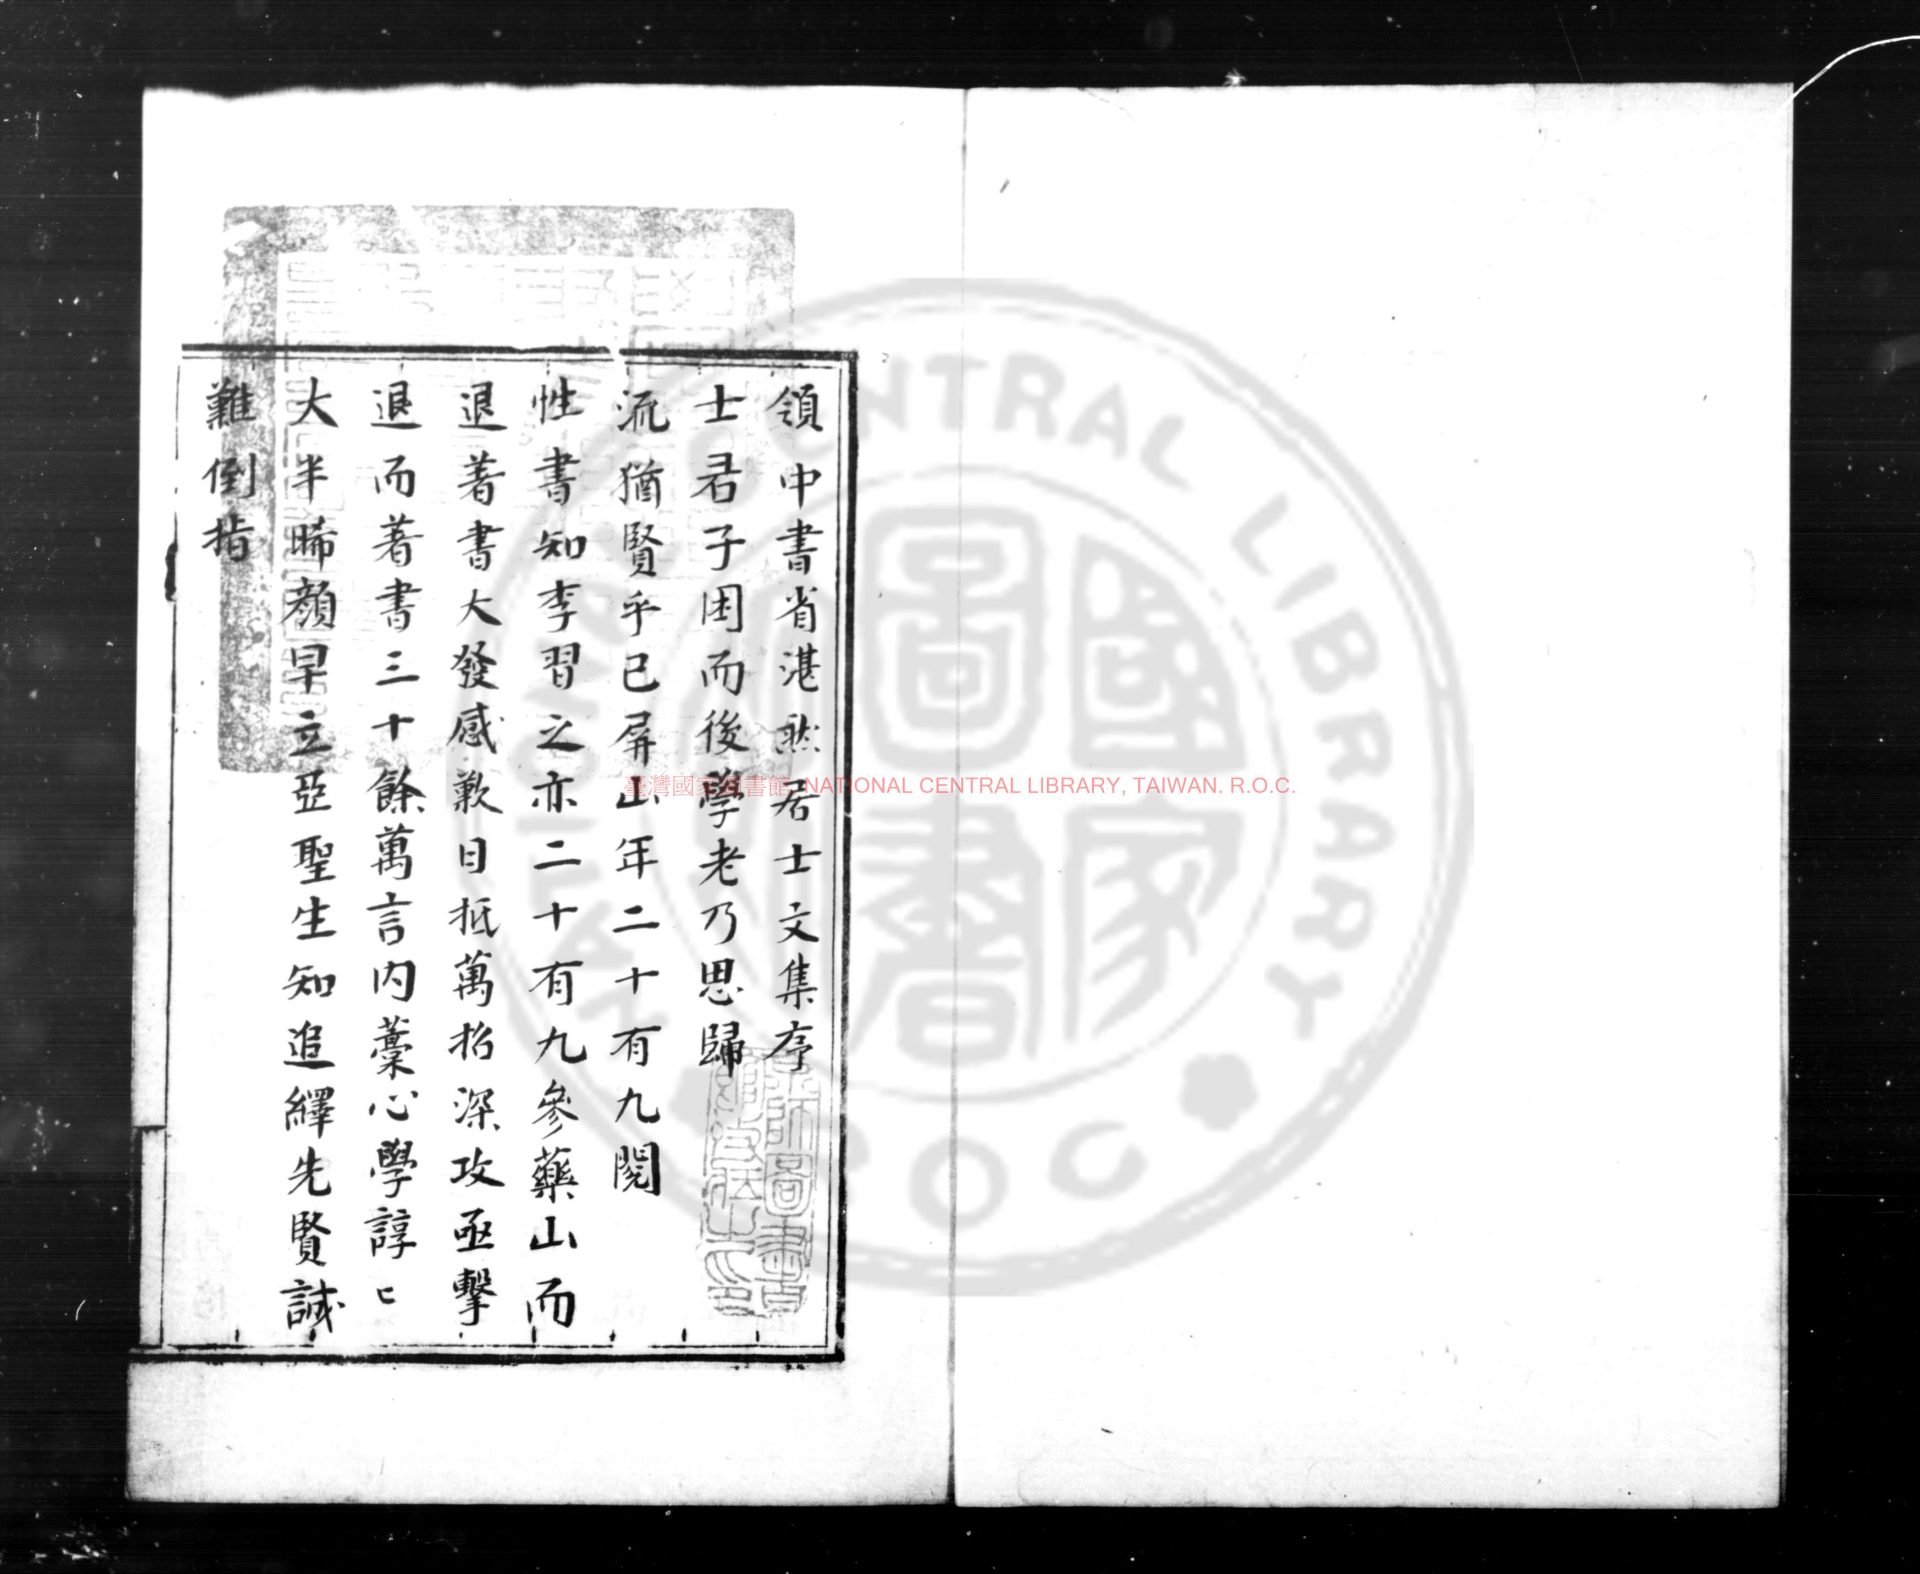 領中書省湛然居士文集序
士君子困而後學老乃思歸
流猶賢乎已屏山年二十有九閱
性書知李習之亦二十有九參藥山而
退著書大發感歎日抵萬招深攻亟擊
退而著書三十餘萬言內藁心學諄〻
大半晞顏早立亞聖生知追繹先賢誠
難倒指
臺灣國家圖書館, NATIONAL CENTRAL LIBRARY, TAIWAN. R.O.C.
NATIONAL CENTRAL LIBRARY
R.O.C.
國家
圖書